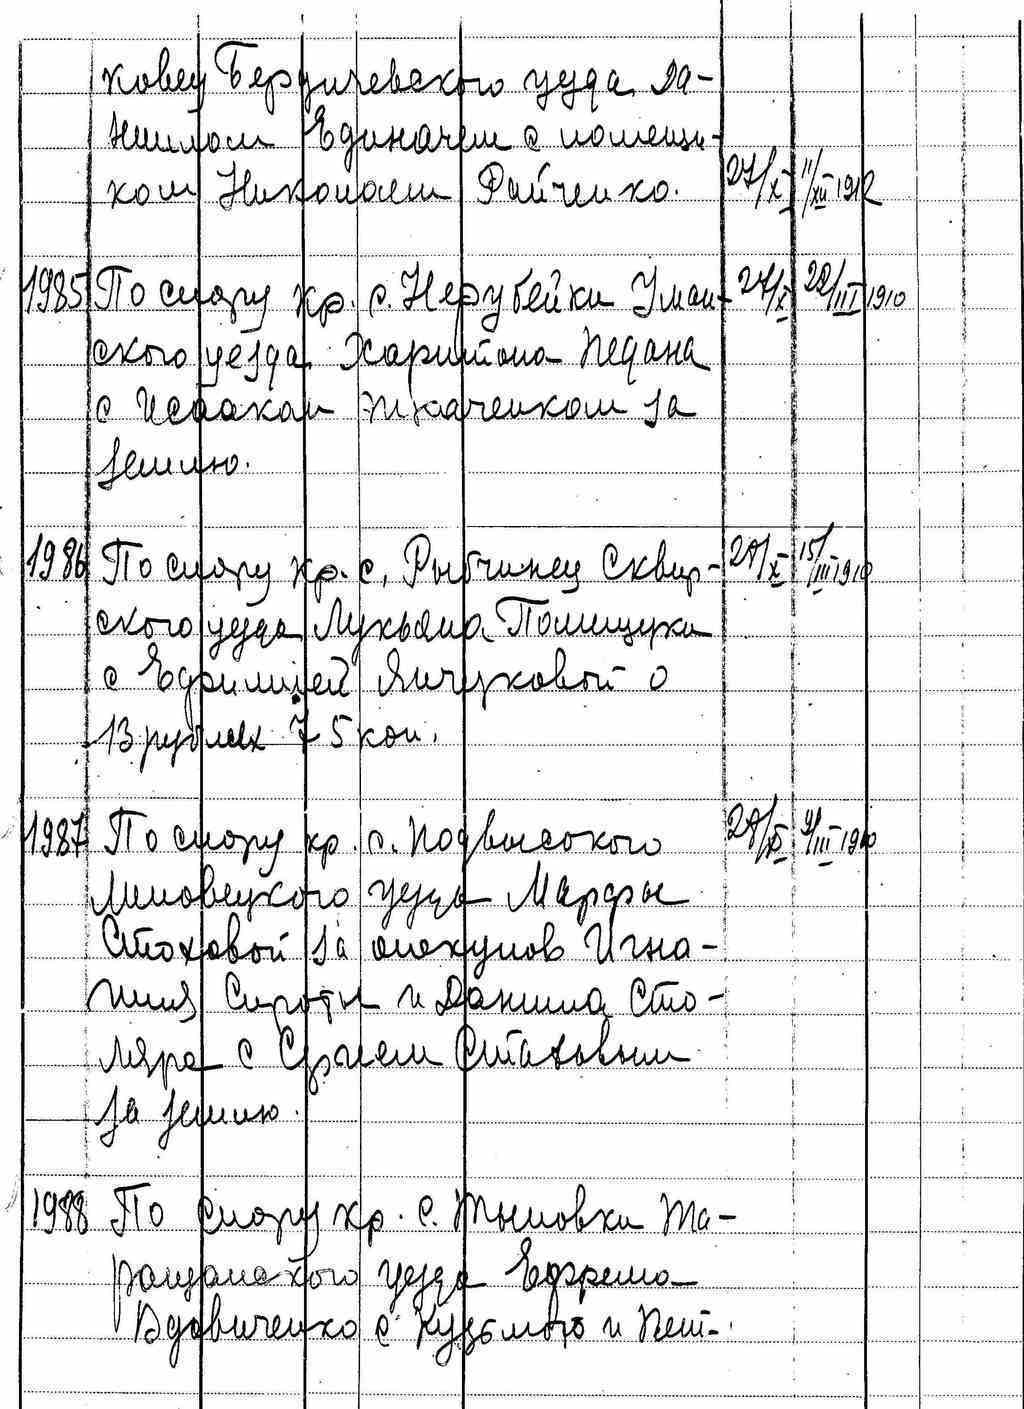 ковец Бердичевского уезда Да-
ниилом Единачем с помещи-
ком Николаем Райченко. 27/XI 11/XII 1912
1985 По спору кр. с. Нерубейки Уман- 27/X 22/III 1910
ского уезда Харитона Педана
с Исааком Ткаченком за
землю.
1986 По спору кр. с. Рыбчинец Сквир- 29/X 15/III 1910
ского уезда Лукьяна Полищука
с Ефимией Янчуковой о
13 рублях 75 коп.
1987 По спору кр. с. Подвысокого 29/XI 9/III 1910
Липовецкого уезда Марфы
Стаховой за опекунов Игна-
тия Сироты и Даниила Сто-
ляра с Сергием Стаховым
за землю.
1988 По спору кр. с. Тыновки Та-
ращанского уезда Ефрема
Вдовиченко с Кузьмою и Пет-